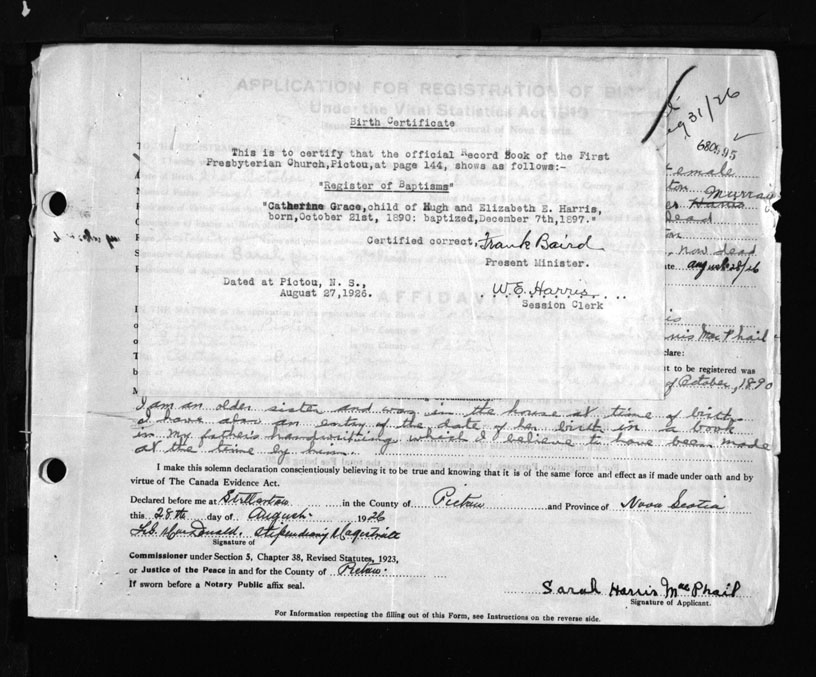 APPLICATION FOR REGISTRATION OF BIRTH
Under the Vital Statistics Act 1919
Birth Certificate
This is to certify that the official Record Book of the First
Presbyterian Church,Pictou,at page 144, shows as follows:-
"Register of Baptisms"
"Catherine Grace,child of Hugh and Elizabeth E. Harris,
born,October 21st, 1890: baptized,December 7th,1897."
Certified correct, Frank Baird
Present Minister.
Dated at Pictou, N. S.,
August 27,1926.
W.E. Harris
Session Clerk
31/26
emale
Murray
Harris
dead
, now dead
ate august 28/26
AFFIDAV
rris MacPhail
lare:
t to be registered was
of October, 1890
I am an older sister and was in the house at time of birth.
I have also an entry of the date of her birth in a book
in my father's handwriting which I believe to have been made
at the time by him.
I make this solemn declaration conscientiously believing it to be true and knowing that it is of the same force and effect as if made under oath and by
virtue of The Canada Evidence Act.
Declared before me at Stellarton in the County of Pictou and Province of Nova Scotia
this 28th day of August 1926
MacDonald, Stipendiary Magistrate
Signature of
Commissioner under Section 5, Chapter 38, Revised Statutes, 1923,
or Justice of the Peace in and for the County of Pictou.
If sworn before a Notary Public affix seal.
Sarah Harris MacPhail
Signature of Applicant.
For Information respecting the filling out of this Form, see Instructions on the reverse side.